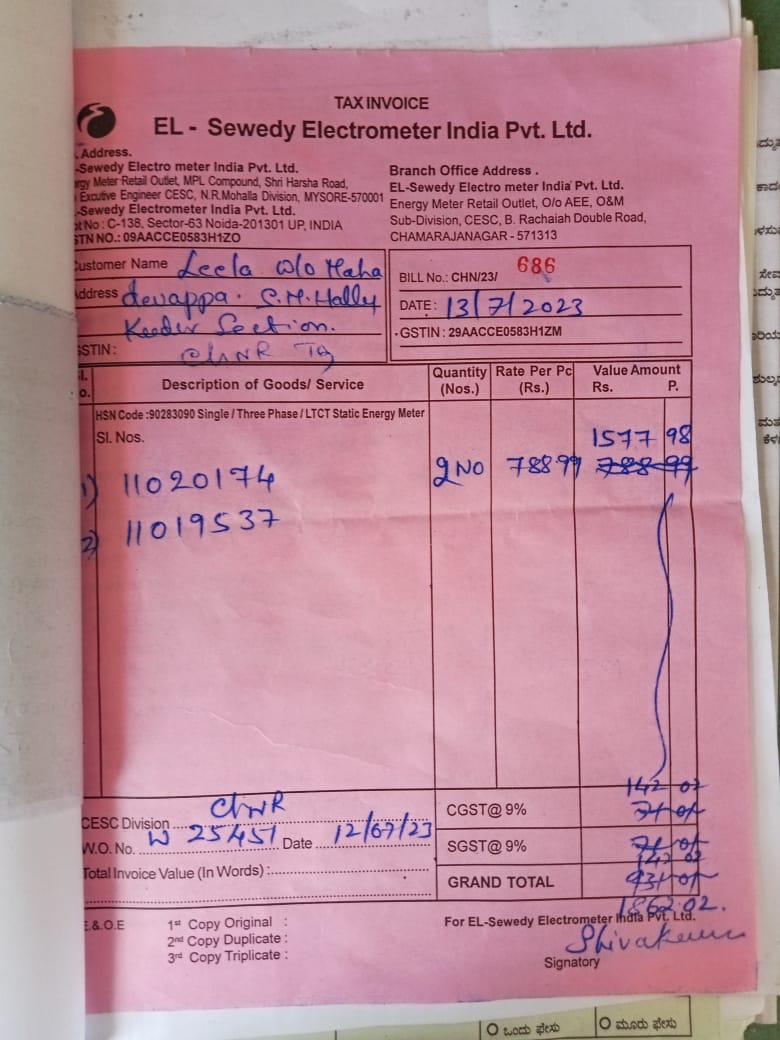 TAX INVOICE
EL - Sewedy Electrometer India Pvt. Ltd.
. Address.
-Sewedy Electro meter India Pvt. Ltd.
rgy Meter Retail Outlet, MPL Compound, Shri Harsha Road,
Excutive Engineer CESC, N.R.Mohalla Division, MYSORE-570001
.-Sewedy Electrometer India Pvt. Ltd.
t No : C-138, Sector-63 Noida-201301 UP, INDIA
STN NO.: 09AACCE0583H1ZO
Branch Office Address .
EL-Sewedy Electro meter India Pvt. Ltd.
Energy Meter Retail Outlet, O/o AEE, O&M
Sub-Division, CESC, B. Rachaiah Double Road,
CHAMARAJANAGAR - 571313
ustomer Name Leela W/o Maha
ddress devappa. S.M.Hally
Section.
GSTIN: ChNR Tq
BILL No.: CHN/23/ 686
DATE: 13/7/2023
GSTIN : 29AACCE0583H1ZM
l. o. Description of Goods/ Service Quantity (Nos.) Rate Per Pc (Rs.) Value Amount Rs. P.
HSN Code :90283090 Single / Three Phase / LTCT Static Energy Meter
Sl. Nos.
1577 98
1) 11020174 2 NO 788 99 788 99
2) 11019537
142 02
CESC Division ChNR CGST@ 9% 71 01
W.O. No. W 25451 Date 12/07/23 SGST@ 9% 71 01
142 02
Total Invoice Value (In Words) : GRAND TOTAL 931 01
1862.02.
E.& O.E
1st Copy Original :
2nd Copy Duplicate :
3rd Copy Triplicate :
For EL-Sewedy Electrometer India Pvt. Ltd.
Signatory
ಒಂದು ಫೇಸು
ಮೂರು ಫೇಸು